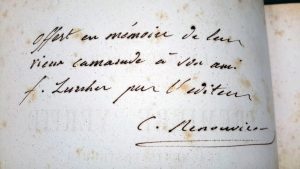 offert en mémoire de leur
vieux camarade à son ami
f. Lurcher par l'editeur
C. Renouvier